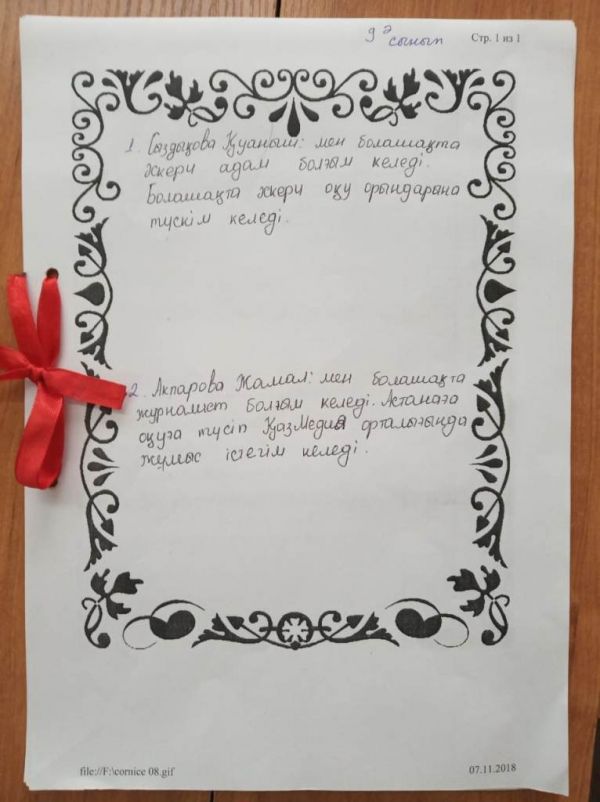 9 ә сынып
Стр. 1 из 1
1. Сыздықова Қуаныш: мен болашақта
әскери адам болғым келеді.
Болашақта әскери оқу орындарына
түскім келеді.
2. Акпарова Жамал: мен болашақта
журналист болғым келеді. Астанаға
оқуға түсіп ҚазМедиа орталығында
жұмыс істегім келеді.
file://F:\cornice 08.gif
07.11.2018